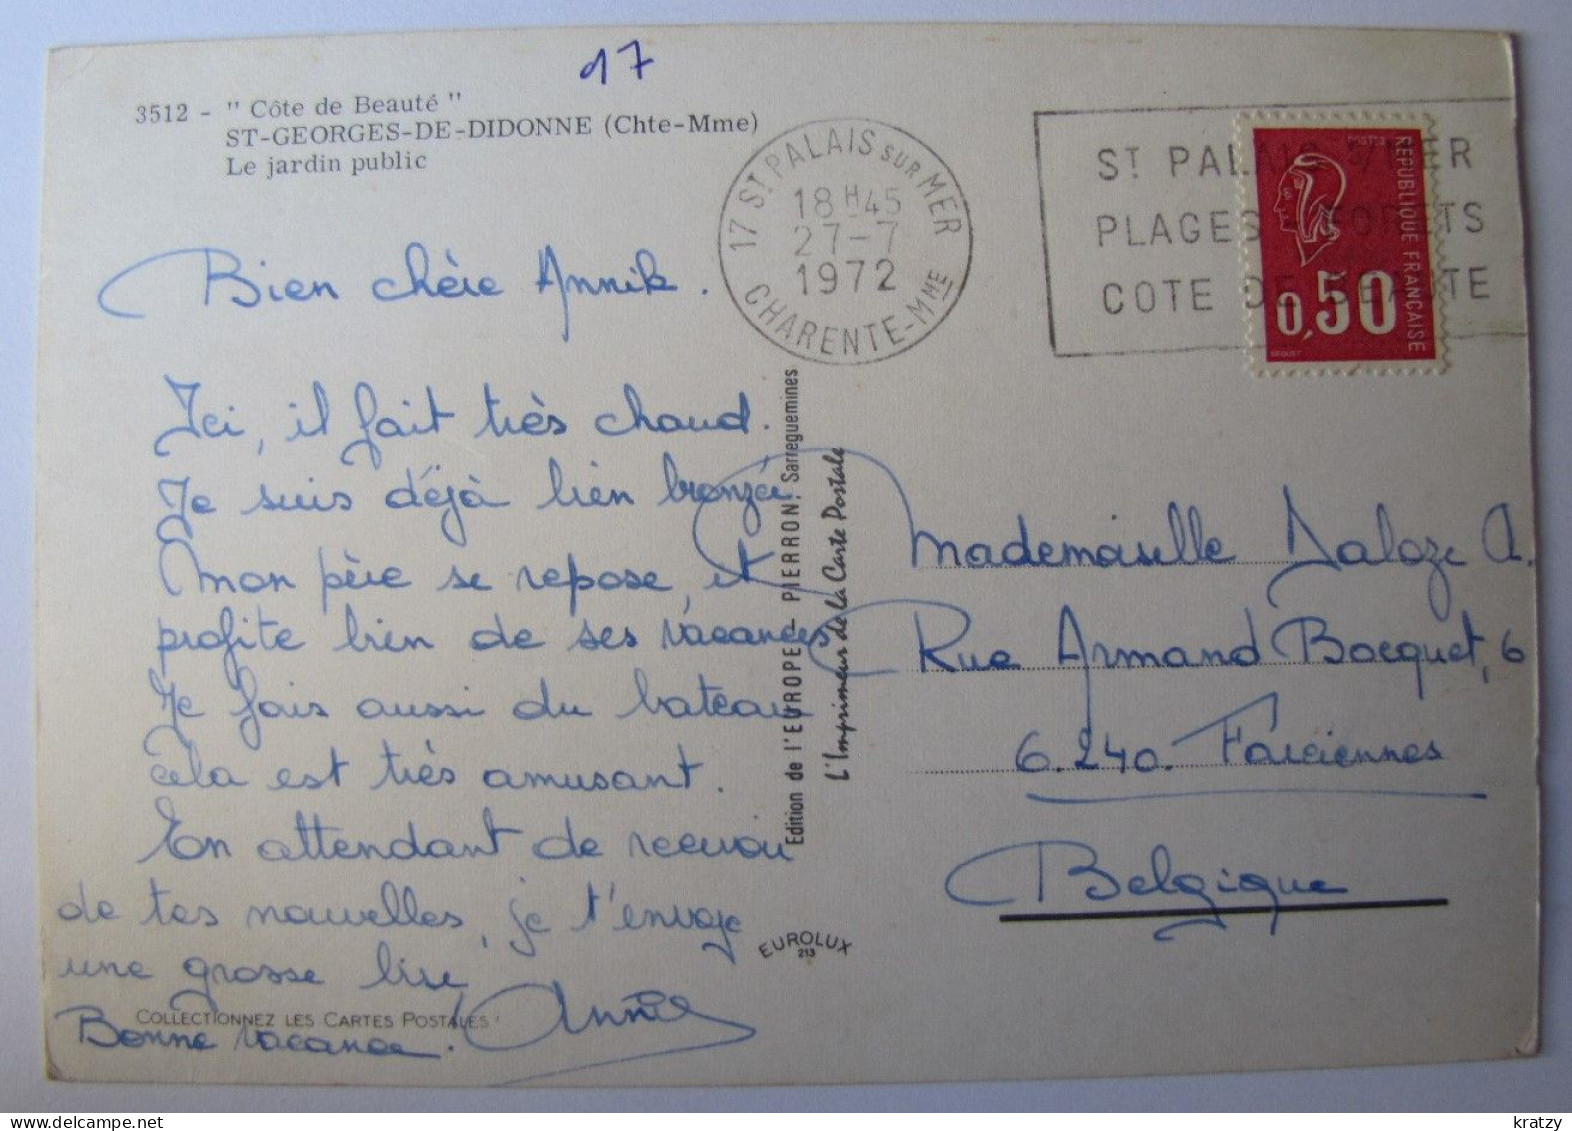 17
3512 - " Côte de Beauté "
ST-GEORGES-DE-DIDONNE (Chte-Mme)
Le jardin public
17 ST PALAIS SUR MER
18H45
27-7
1972
CHARENTE-MME
ST PALAIS S/MER
PLAGES - FORETS
COTE DE BEAUTE
POSTES
REPUBLIQUE FRANÇAISE
0,50
BEQUET
Bien chère Annik.
Ici, il fait très chaud.
Je suis déjà bien bronzée.
Mon père se repose, et
profite bien de ses vacances
Je fais aussi du bateau
cela est très amusant.
En attendant de recevoir
de tes nouvelles, je t'envoje
une grosse bise,
Bonne vacance.
Annie
COLLECTIONNEZ LES CARTES POSTALES
Edition de l'EUROPE - PIERRON, Sarreguemines
L'Imprimeur de la Carte Postale
EUROLUX
213
Mademoiselle Daloze A.
Rue Armand Bocquet, 6
6.240. Farciennes
Belgique
kratzy